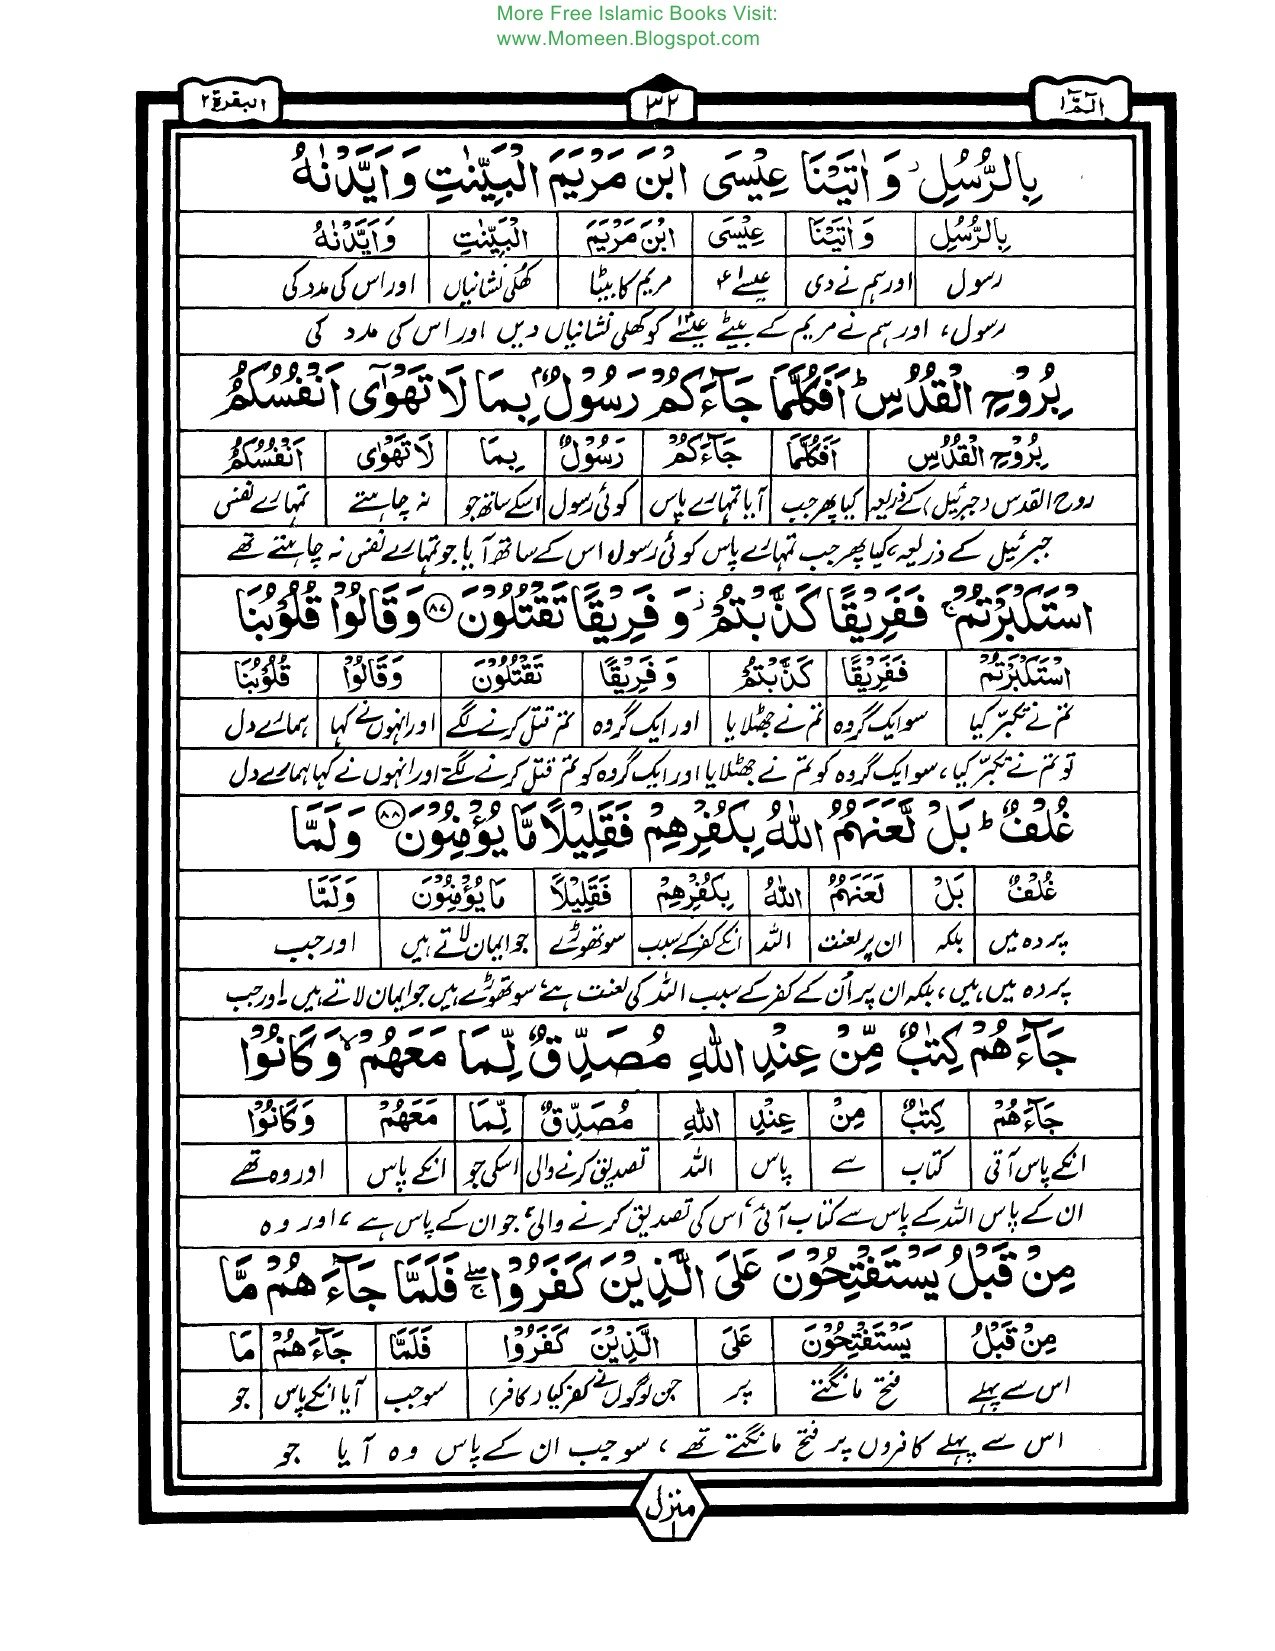 More Free Islamic Books Visit:
www.Momeen.Blogspot.com
الٓمّٓ ١ ٣٢ البقرة ٢
بِالرُّسُلِ ۫ وَ اٰتَيْنَا عِيْسَى ابْنَ مَرْيَمَ الْبَيِّنٰتِ وَ اَيَّدْنٰهُ
بِالرُّسُلِ وَ اٰتَيْنَا عِيْسَى ابْنَ مَرْيَمَ الْبَيِّنٰتِ وَ اَيَّدْنٰهُ
رسول اور ہم نے دی عیسےٰؑ مریم کا بیٹا کھلی نشانیاں اور اس کی مدد کی
رسول، اور ہم نے مریم کے بیٹے عیسٰےؑ کو کھلی نشانیاں دیں اور اس کی مدد کی
بِرُوْحِ الْقُدُسِ ؕ اَفَكُلَّمَا جَآءَكُمْ رَسُوْلٌۢ بِمَا لَا تَهْوٰۤى اَنْفُسُكُمُ
بِرُوْحِ الْقُدُسِ اَفَكُلَّمَا جَآءَكُمْ رَسُوْلٌ بِمَا لَا تَهْوٰۤى اَنْفُسُكُمُ
روح القدس (جبرئیل) کے ذریعہ کیا پھر جب آیا تمہارے پاس کوئی رسول اسکے ساتھ جو نہ چاہتے تمہارے نفس
جبرئیل کے ذریعہ، کیا پھر جب تمہارے پاس کوئی رسول اس کے ساتھ آیا جو تمہارے نفس نہ چاہتے تھے
اسْتَكْبَرْتُمْ ۚ فَفَرِيْقًا كَذَّبْتُمْ ۫ وَ فَرِيْقًا تَقْتُلُوْنَ ﴿٨٧﴾ وَ قَالُوْا قُلُوْبُنَا
اسْتَكْبَرْتُمْ فَفَرِيْقًا كَذَّبْتُمْ وَ فَرِيْقًا تَقْتُلُوْنَ وَ قَالُوْا قُلُوْبُنَا
تم نے تکبّر کیا سو ایک گروہ تم نے جھٹلایا اور ایک گروہ تم قتل کرنے لگے اور انہوں نے کہا ہمارے دل
تو تم نے تکبّر کیا، سو ایک گروہ کو تم نے جھٹلایا اور ایک گروہ کو تم قتل کرنے لگتے اور انہوں نے کہا ہمارے دل
غُلْفٌ ؕ بَلْ لَّعَنَهُمُ اللّٰهُ بِكُفْرِهِمْ فَقَلِيْلًا مَّا يُؤْمِنُوْنَ ﴿٨٨﴾ وَ لَمَّا
غُلْفٌ بَلْ لَعَنَهُمُ اللّٰهُ بِكُفْرِهِمْ فَقَلِيْلًا مَا يُؤْمِنُوْنَ وَ لَمَّا
پردہ میں بلکہ ان پر لعنت اللہ انکے کفر کے سبب سو تھوڑے جو ایمان لاتے ہیں اور جب
پردہ میں ہیں، بلکہ ان پر اُن کے کفر کے سبب اللہ کی لعنت ہے، سو تھوڑے ہیں جو ایمان لاتے ہیں۔ اور جب
جَآءَهُمْ كِتٰبٌ مِّنْ عِنْدِ اللّٰهِ مُصَدِّقٌ لِّمَا مَعَهُمْ ۙ وَ كَانُوْا
جَآءَهُمْ كِتٰبٌ مِنْ عِنْدِ اللّٰهِ مُصَدِّقٌ لِّمَا مَعَهُمْ وَ كَانُوْا
انکے پاس آئی کتاب سے پاس اللہ تصدیق کرنے والی اسکی جو انکے پاس اور وہ تھے
ان کے پاس اللہ کے پاس سے کتاب آئی، اس کی تصدیق کرنے والی، جو ان کے پاس ہے، اور وہ
مِنْ قَبْلُ يَسْتَفْتِحُوْنَ عَلَى الَّذِيْنَ كَفَرُوْا ۖۚ فَلَمَّا جَآءَهُمْ مَّا
مِنْ قَبْلُ يَسْتَفْتِحُوْنَ عَلَى الَّذِيْنَ كَفَرُوْا فَلَمَّا جَآءَهُمْ مَا
اس سے پہلے فتح مانگتے پر جن لوگوں نے کفر کیا (کافر) سو جب آیا انکے پاس جو
اس سے پہلے کافروں پر فتح مانگتے تھے، سو جب ان کے پاس وہ آیا جو
منزل ١